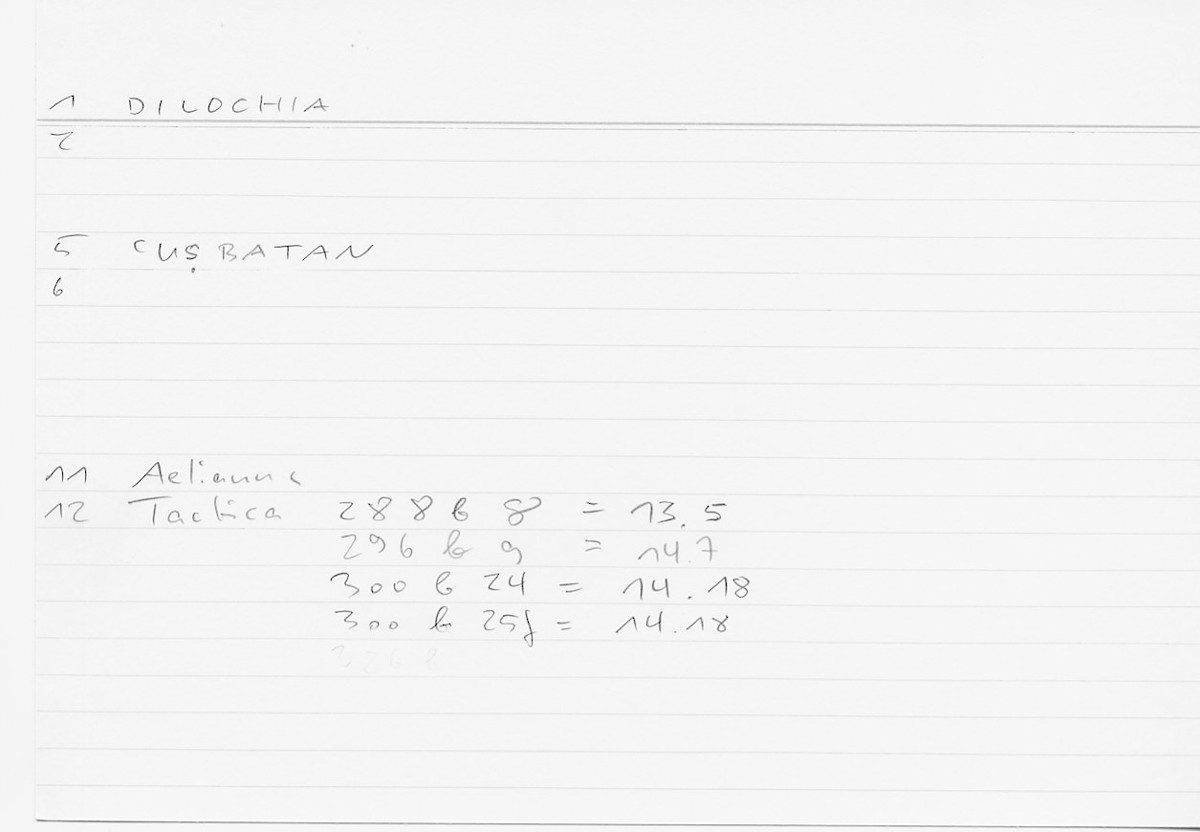 1 DILOCHIA
2
5 CUṢBATAN
6
11 Aelianus
12 Tactica 288 b 8 = 13.5
296 b 9 = 14.7
300 b 24 = 14.18
300 b 25f = 14.18